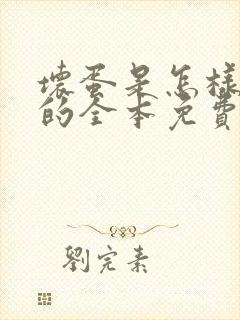 壞蛋是怎樣
的全本免費
劉完素